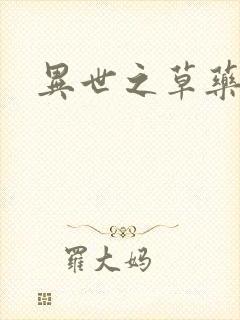 異世之草藥
羅大妈